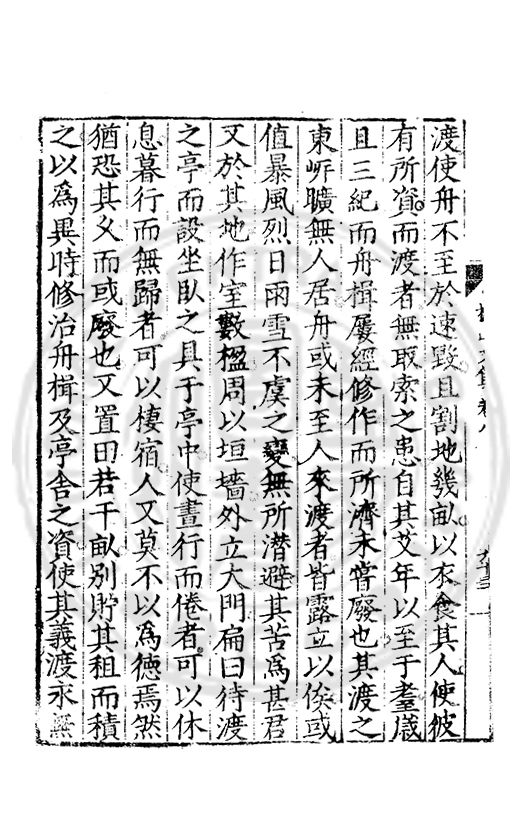 渡使舟不至於速毀且割地幾畝以衣食其人使彼
有所資而渡者無取索之患自其艾年以至于耋歲
且三紀而舟楫屢經修作而所濟未嘗廢也其渡之
東岍曠無人居舟或未至人來渡者皆露立以俟或
值暴風烈日雨雪不虞之變無所潜避其苦為甚君
又於其地作室數楹周以垣墻外立大門扁曰待渡
之亭而設坐臥之具于亭中使晝行而倦者可以休
息暮行而無歸者可以棲宿人又莫不以為德焉然
猶恐其久而或廢也又置田若干畝別貯其租而積
之以為異時修治舟楫及亭舍之資使其義渡永無